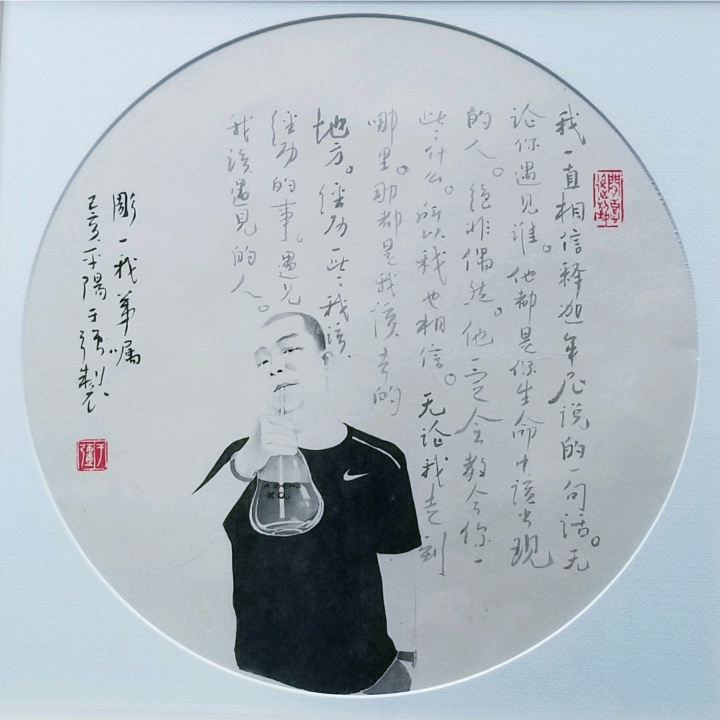 我一直相信释迦牟尼说的一句话。无
论你遇见谁。他都是你生命中该出现
的人。绝非偶然。他一定会教会你一
些什么。所以我也相信。无论我走到
哪里。那都是我该去的
地方。经历一些我该
经历的事。遇见
我该遇见的人。
彫一我弟嘱
己亥平阳于彊製
于彊